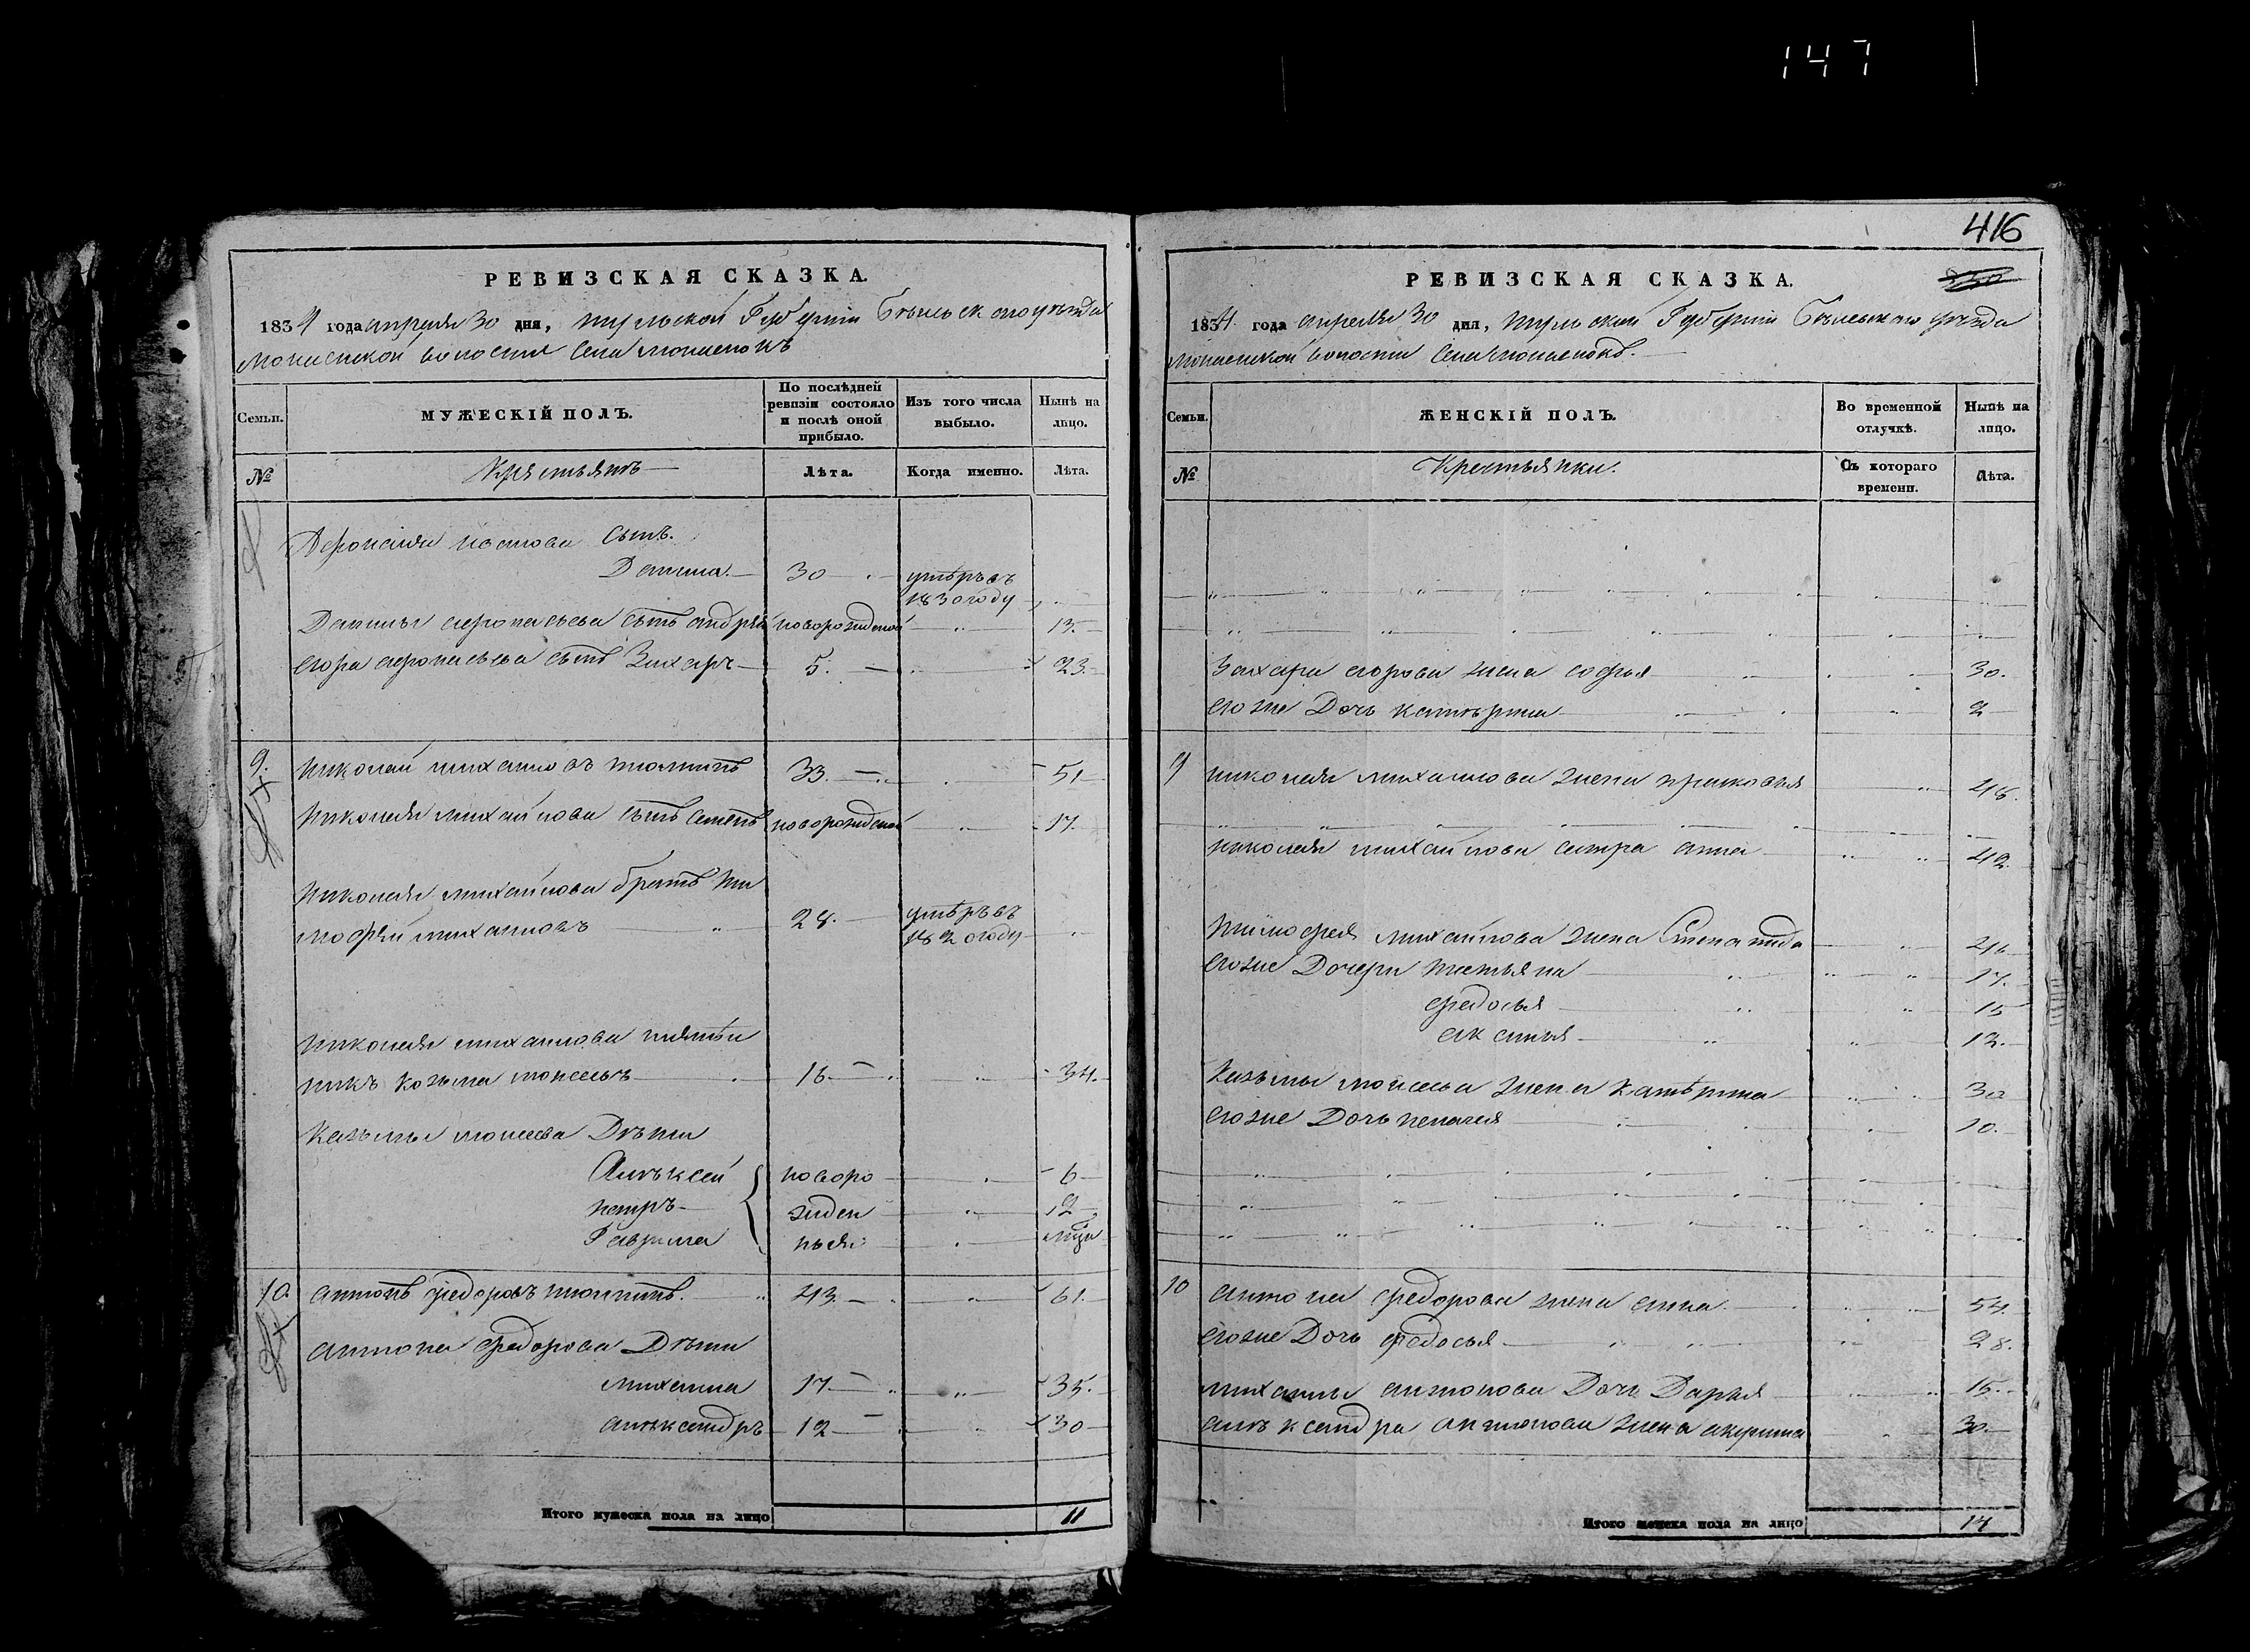 147
РЕВИЗСКАЯ СКАЗКА.
1834 года апреля 30 дня, тульской Губернии Бѣлевскаго уѣзда
волости села
Семьи.
МУЖЕСКІЙ ПОЛЪ.
По послѣдней ревизіи состояло и послѣ оной прибыло.
Изъ того числа выбыло.
Нынѣ на лицо.
№
Крестьянъ
Лѣта.
Когда именно.
Лѣта.
иванова сынъ
Данила. 30 умѣръ въ
1830 году
Данилы сынъ андрѣй новорожденой 15.
егора сынъ Захаръ 5. 23.
9. николай михаиловъ 33. 51
николая михайлова сынъ семенъ новорожденой 17.
николая михайлова братъ ти
мофѣй михаиловъ 28. умѣръ въ
1820 году
николая михаилова племѣн
никъ козьма моисеевъ 16. 34.
казьмы моисеева Дѣти
Алѣксей новоро 6
петръ жден 2
Гаврила ныя
10. антонъ федоровъ 43. 61.
антона федорова Дѣти
михаила 17. 35.
алѣксандръ 12 30
Итого мужеска пола на лицо 11
416
РЕВИЗСКАЯ СКАЗКА.
1834 года апреля 30 дня, тульской Губерніи Бѣлевскаго уѣзда
волости села
Семьи.
ЖЕНСКІЙ ПОЛЪ.
Во временной отлучкѣ.
Нынѣ на лицо.
№
Крестьянки.
Съ котораго времени.
Лѣта.
Захара егорова жена софья 30.
егоже Дочь катѣрина 2
9 николая михаилова жена прасковья 48.
николая михайлова сестра анна 42.
тимофея михайлова жена Степанида 46
егоже Дочери татьяна 17.
федосья 15
аксинья 12.
казьмы моисеева жена катѣрина 30
егоже Дочь пелагея 10.
10 антона федорова жена анна 54.
егоже Дочь федосья 28.
михаилы антонова Дочь Дарья 15.
алѣксандра антонова жена акулина 30.
Итого женска пола на лицо 14